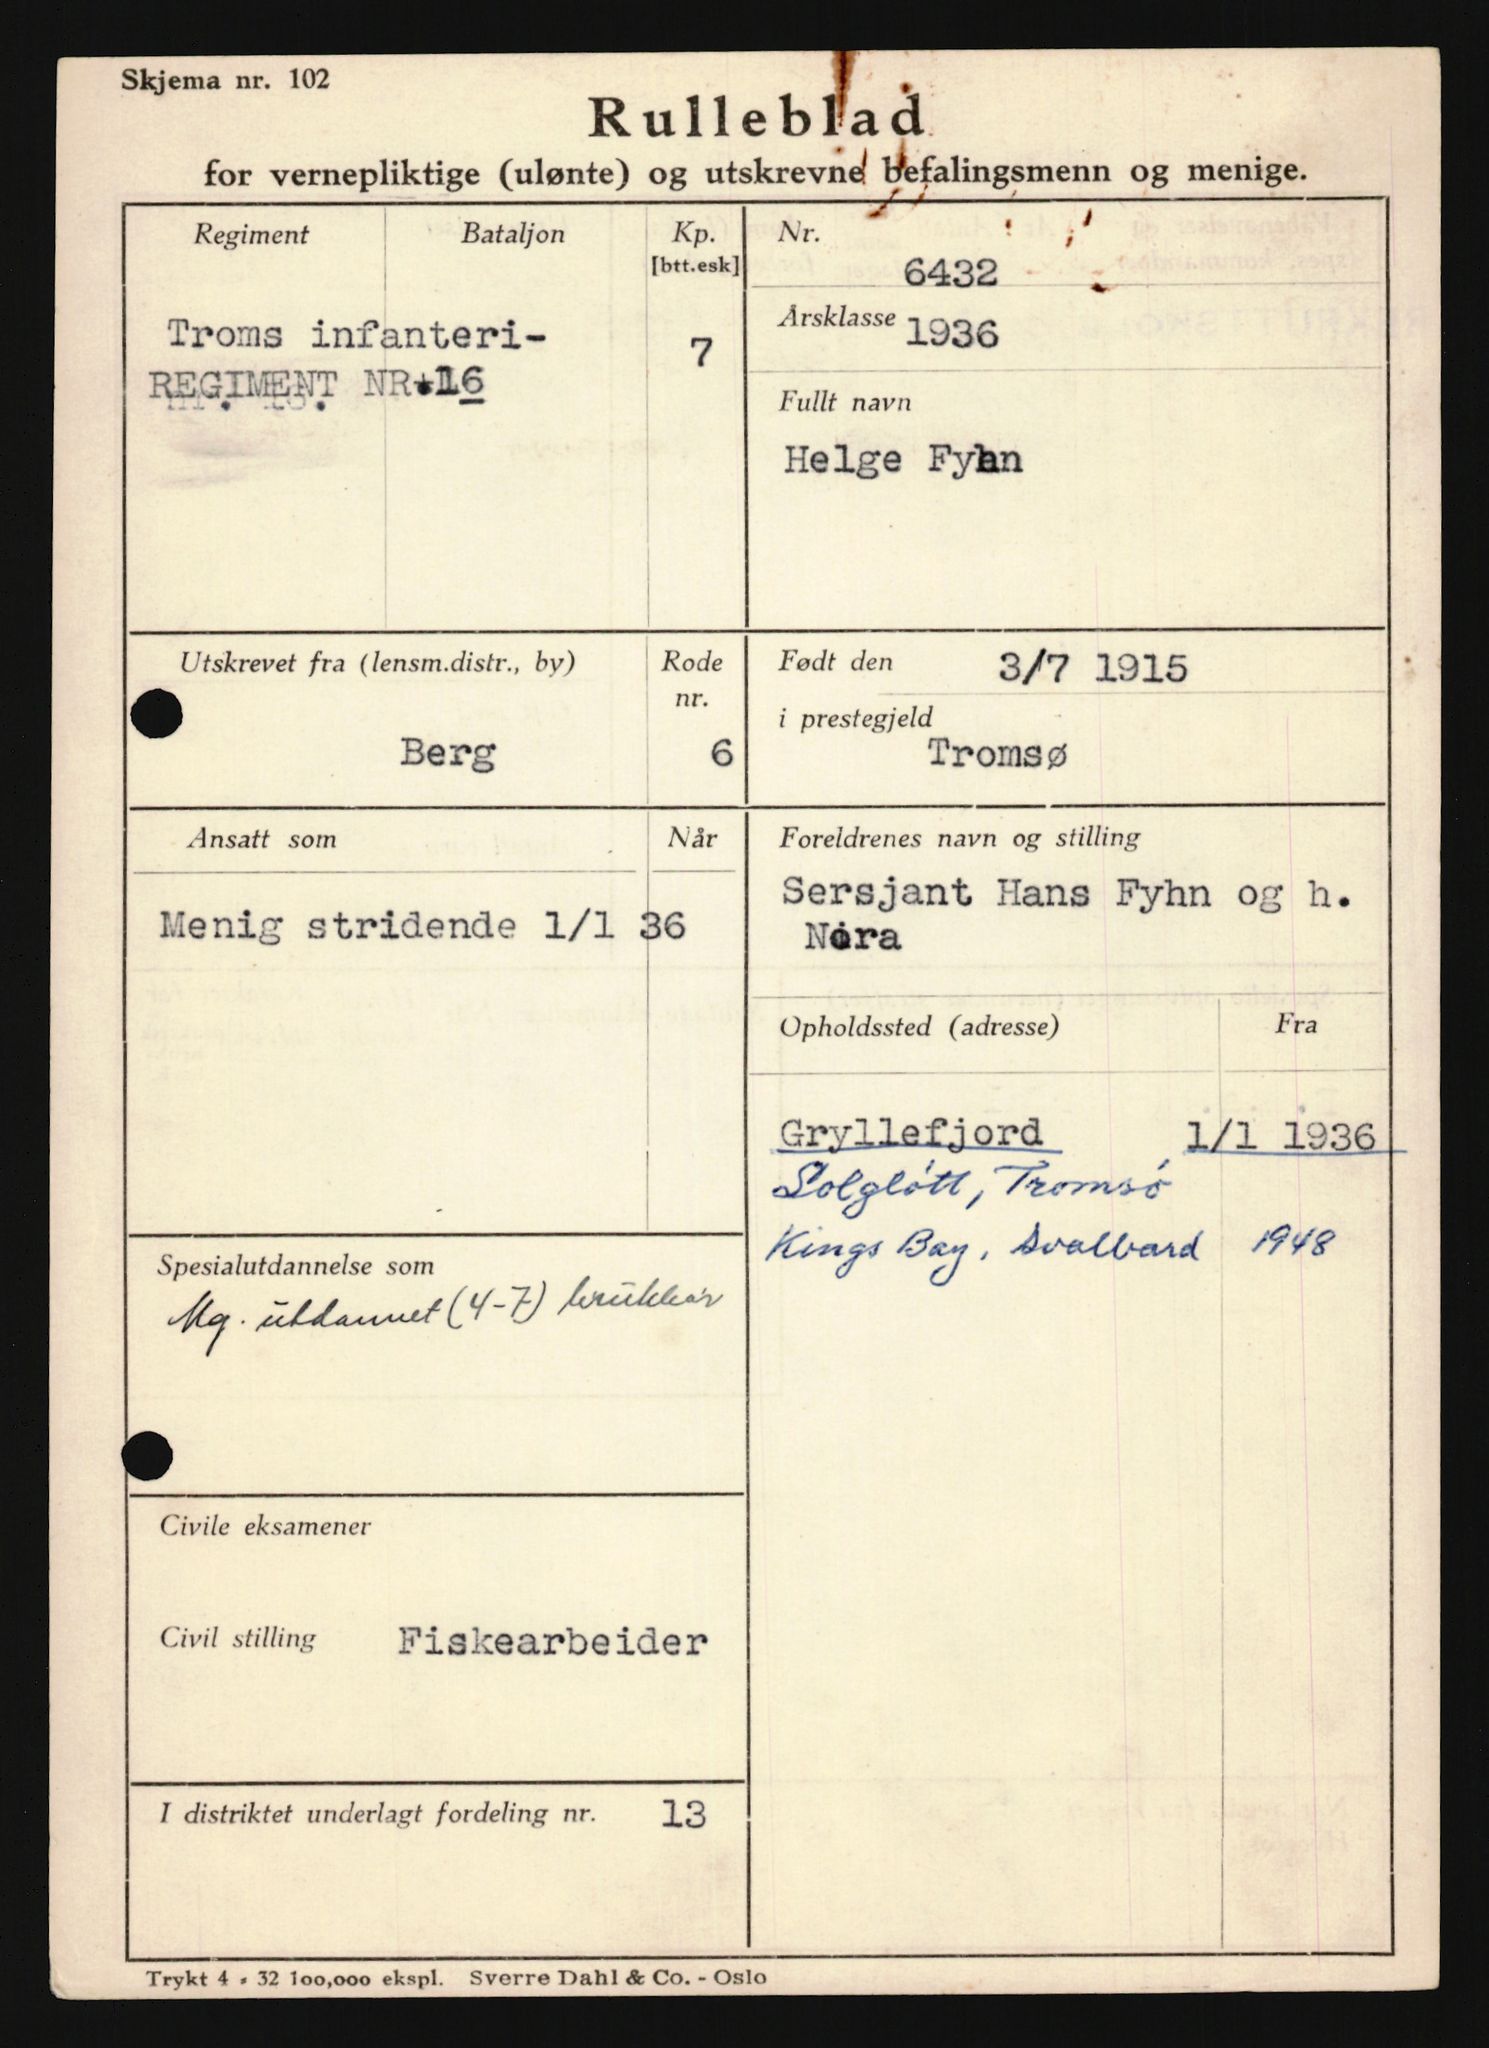 Skjema nr. 102
Rulleblad
for vernepliktige (ulønte) og utskrevne befalingsmenn og menige.
Regiment
Bataljon
Kp.
[btt.esk]
Troms infanteri-
REGIMENT NR.16
7
Nr.
6432
Årsklasse 1936
Fullt navn
Helge Fyhn
Utskrevet fra (lensm.distr., by)
Rode
nr.
Berg
6
Født den 3/7 1915
i prestegjeld
Tromsø
Ansatt som
Når
Menig stridende 1/1 36
Foreldrenes navn og stilling
Sersjant Hans Fyhn og h.
Nora
Opholdssted (adresse)
Fra
Gryllefjord 1/1 1936
Solgløtt, Tromsø
Kings Bay, Svalbard 1948
Spesialutdannelse som
Mg. utdannet (4-7) brukbar
Civile eksamener
Civil stilling Fiskearbeider
I distriktet underlagt fordeling nr. 13
Trykt 4 - 32 100,000 ekspl. Sverre Dahl & Co. - Oslo